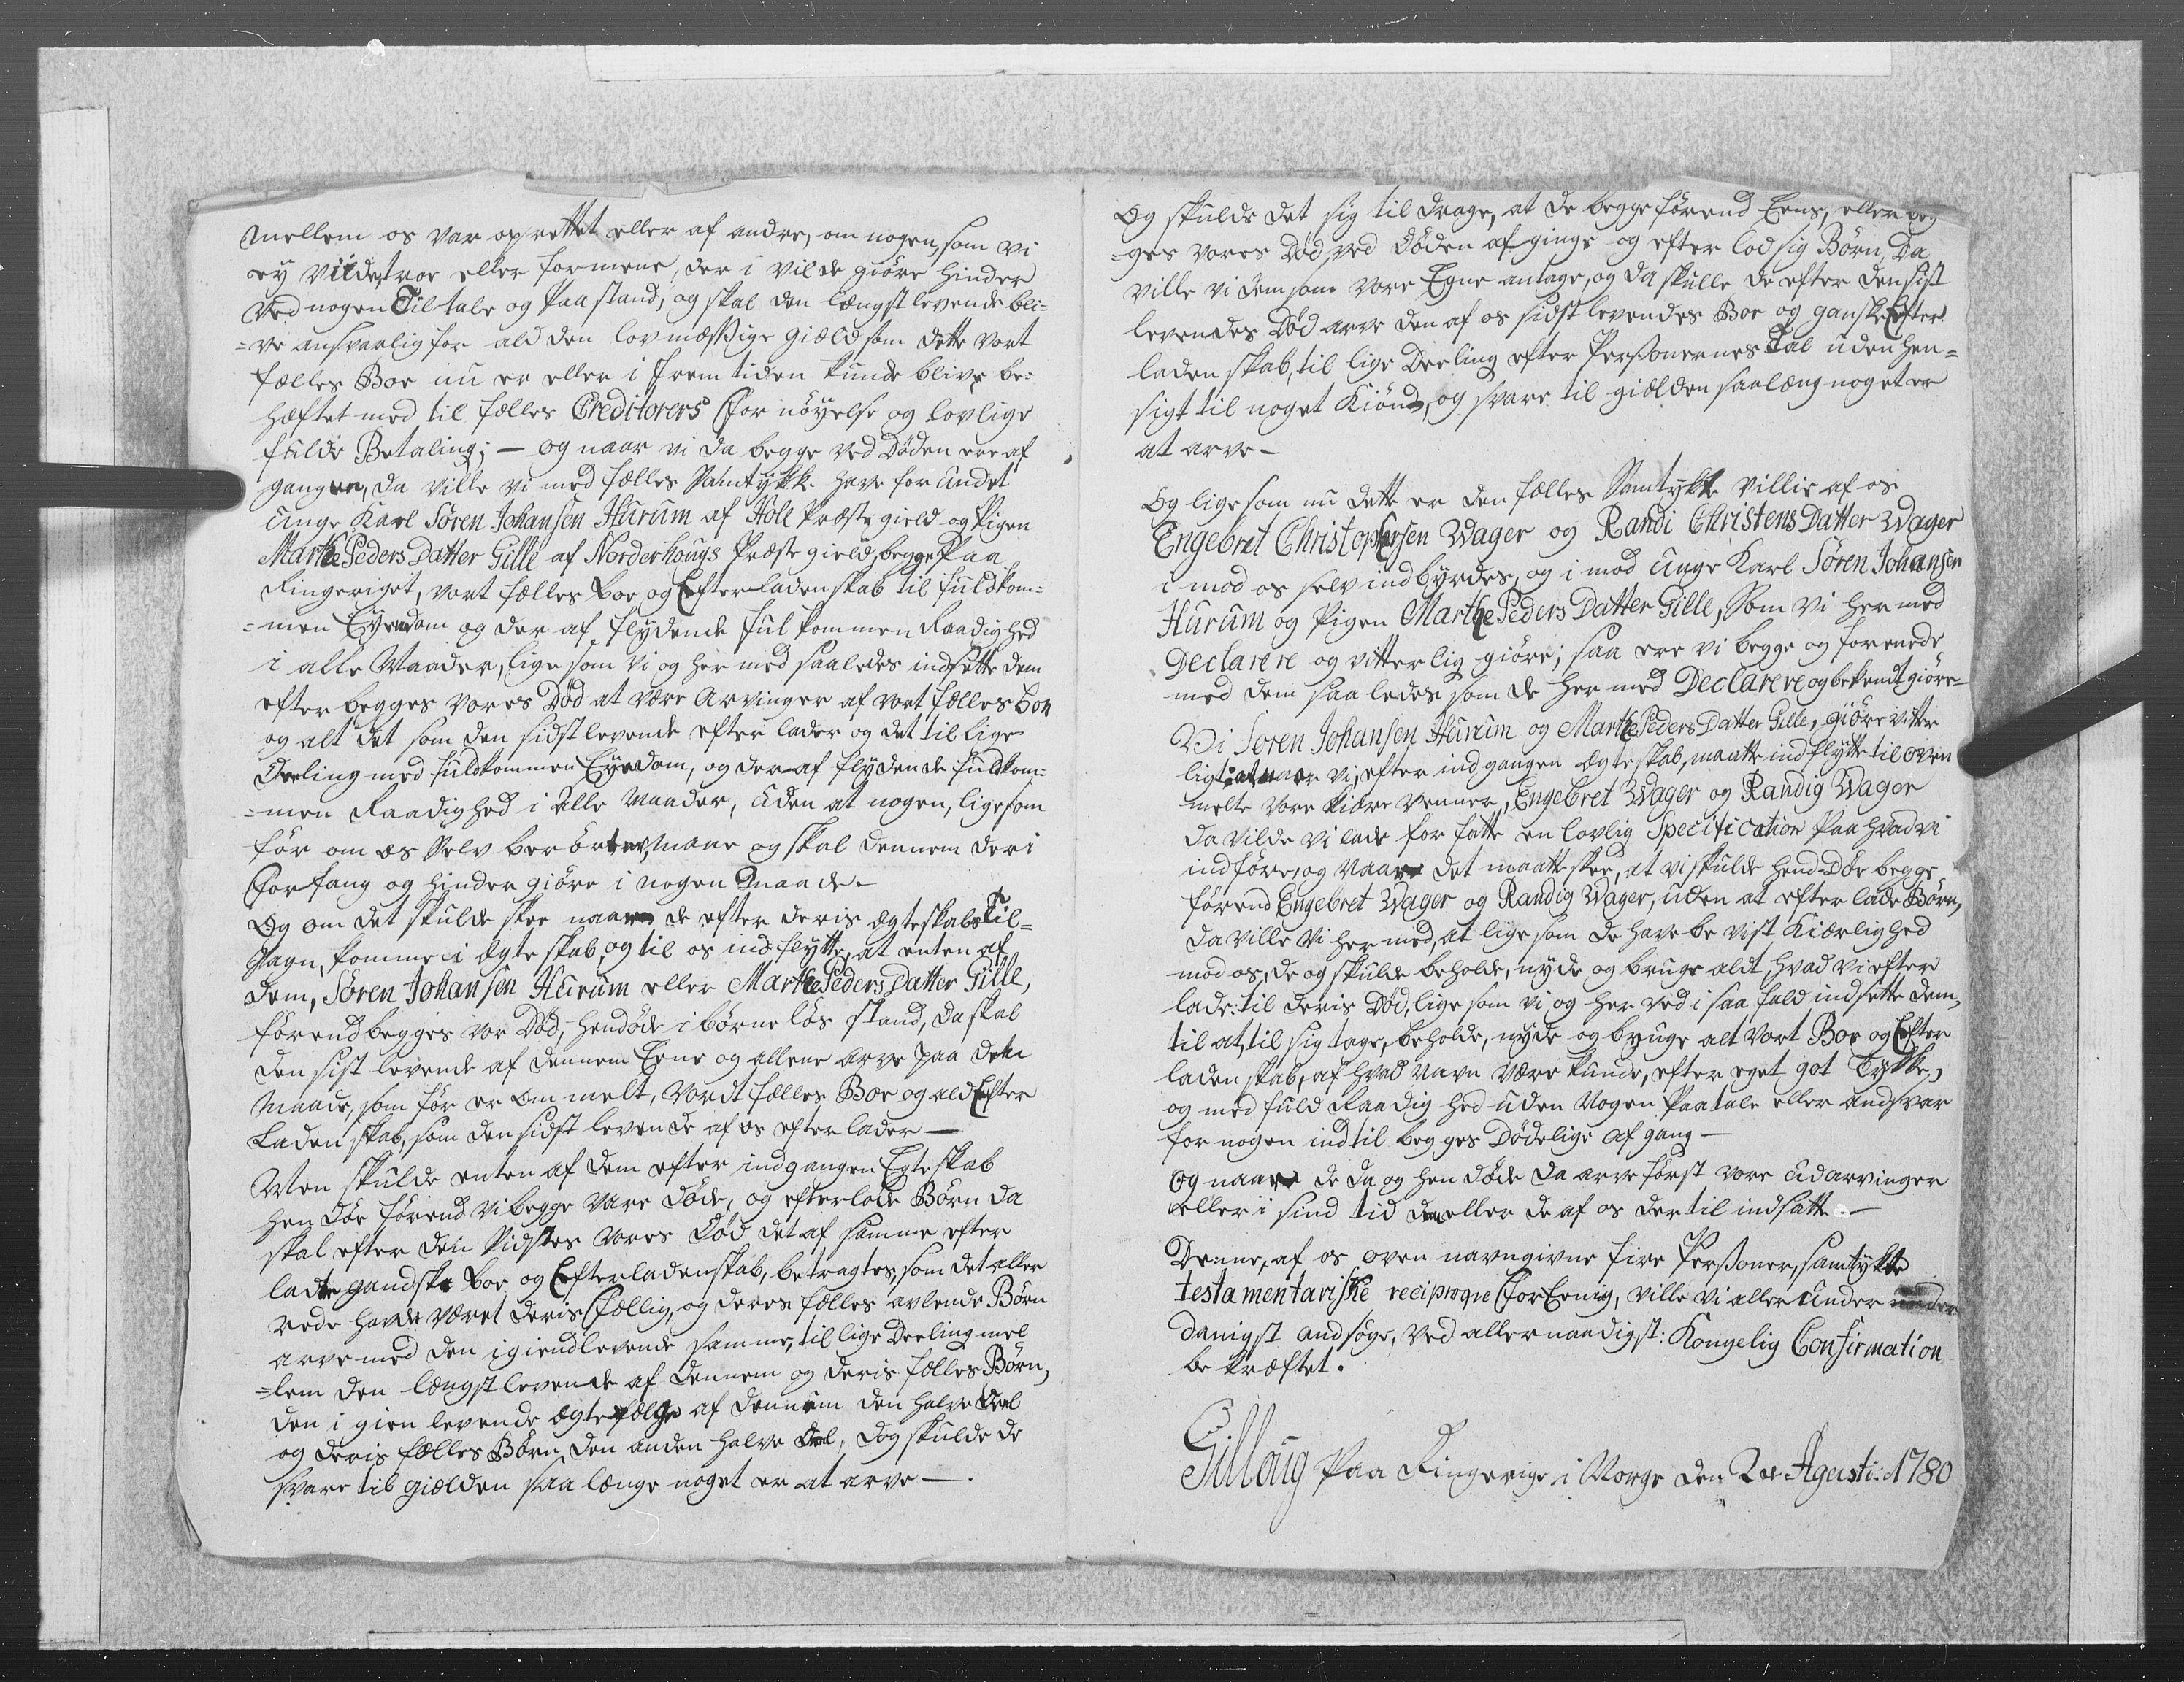 mellem os var oprettet eller af andre, om nogen, som vi
ey viide, troe eller formene, der i vilde giöre hinder
ved nogen Tiltale og Paastand, og skal den længstlevende bli-
-ve ansvarlig for ald den lovmæssige Gield som dette vort
fælles Boe nu er eller i fremtiden kunde blive be-
hæftet med til fælles Creditorers Fornöyelse og lovlige
fulde Betaling; — og naar vi da begge ved Döden ere af
gangen, da ville vi med fælles Samtykke have forundet
Unge Karl Sören Johansen Hurum af Holl Præstegield og Pigen
Marthe Peders Datter Gille af Norderhougs Præstegield begge Paa
Ringeriget, vort fælles Boe og Efterladenskab til fuldkom-
-men Eyendom og der af flydende fulkommen Raadighed
i alle Maader, lige som vi og her med saaledes indsette dem
efter begges vores Död at være Arvinger af vort fælles Boe
og alt det som den sidstlevende efterlader og det til lige
Deeling med fuldkommen Eyedom, og der af flydende fuldkom-
-men Raadighed i alle Maader, uden at nogen, ligesom
för om os selv berörtes, maae og skal dennem deri
Forfang og hinder giöre i nogen Maade.
Og om det skulde skee naar de efter deris ægteskabs Til-
sagn, komme i ægteskab, og til os indflytte, at enten af
dem, Sören Johansen Hurum eller Marthe Peders Datter Gille,
förend begges vor Död, hendöde i börnelös stand, da skal
den sist levende af dennem Eene og allene arve paa den
Maade, som för er ommelt, vordt fælles Boe og ald Efter
Ladenskab, som den sidst levende af os efterlader —
Men skulde enten af dem efter indgangen Egteskab
hen döe förend vi begge vare döde, og efterlode Börn da
skal efter den Sidstes vores Död det af samme efter
ladte gandske Boe og Efterladenskab, betragtes, som det aller
rede havde været deris Fællig, og deres fælles avlende Börn
arve med den igiendlevende samme, til lige Deeling mel
-lem den længstlevende af dennem og deris fælles Börn,
den igien levende ægtefælle af dennem den halve Deel
og deris fælles Börn den anden halve Deel, dog skulde de
svare til giælden saa længe noget er at arve — .
Og skulde det sig til drage, at de begge förend Eens, eller beg
-ges vores Död, ved Döden afginge og efter lod sig Börn, Da
ville vi dem som vore Egne antage, og da skulle de efter den sist
levendes Död arve den af os sidst levendes Boe og ganske Efter
ladenskab, til lige Deeling efter Personernes Tal uden hen-
sigt til noget Kiönd, og svare til giælden saalæng noget er
at arve —
Og lige som nu dette er den fælles Samtykte Villie af os
Engebret Christophersen Wager og Randi Christens Datter Wager
i mod os selv indbyrdes, og i mod Unge Karl Sören Johansen
Hurum og Pigen Marthe Peders Datter Gille, Som vi her med
Declarere og vitterlig giöre; saa ere vi begge og forenede
med dem saa ledes som de her med Declarere og bekendtgiöre —
Vi Sören Johansen Hurum og Marthe Peders Datter Gille, giöre vitter
ligt at naar vi, efter indgangen Ægteskab, maatte indflytte til oven
melte vore kiære Venner, Engebret Wager og Randig Wager
da vilde vi lade forfatte en lovlig Specification Paa hvad vi
indföre, og naar det maatte skee, at vi skulde hend Döe begge
förend Engebret Wager og Randig Wager, uden at efterlade Börn,
da ville vi her med, at lige som de have be vist Kiærlighed
mod os, de og skulde beholde, nyde og bruge aldt hvad vi efter
lade til deris Död, lige som vi og her ved i saa fald indsette dem,
til at, til sig tage, beholde, nyde og bruge alt vort Boe og Efter
ladenskab, af hvad Navn være kunde, efter eget got Tykke,
og med fuld Raadighed uden Nogen Paatale eller andsvar
for nogen indtil begges Dödelige afgang —
og naar de da og hen döde da arve först vore Udarvinger
eller i sind tid den eller de af os der til indsatte —
Denne, af os oven navngivne fire Personer, samtykte
testamentariske reciproqve ForEening, ville vi aller Under
danigst andsöge, ved allernaadigst: Kongelig Confirmation
be kræftet.
Gilloug Paa Ringerige i Norge den 2de Agusti: 1780